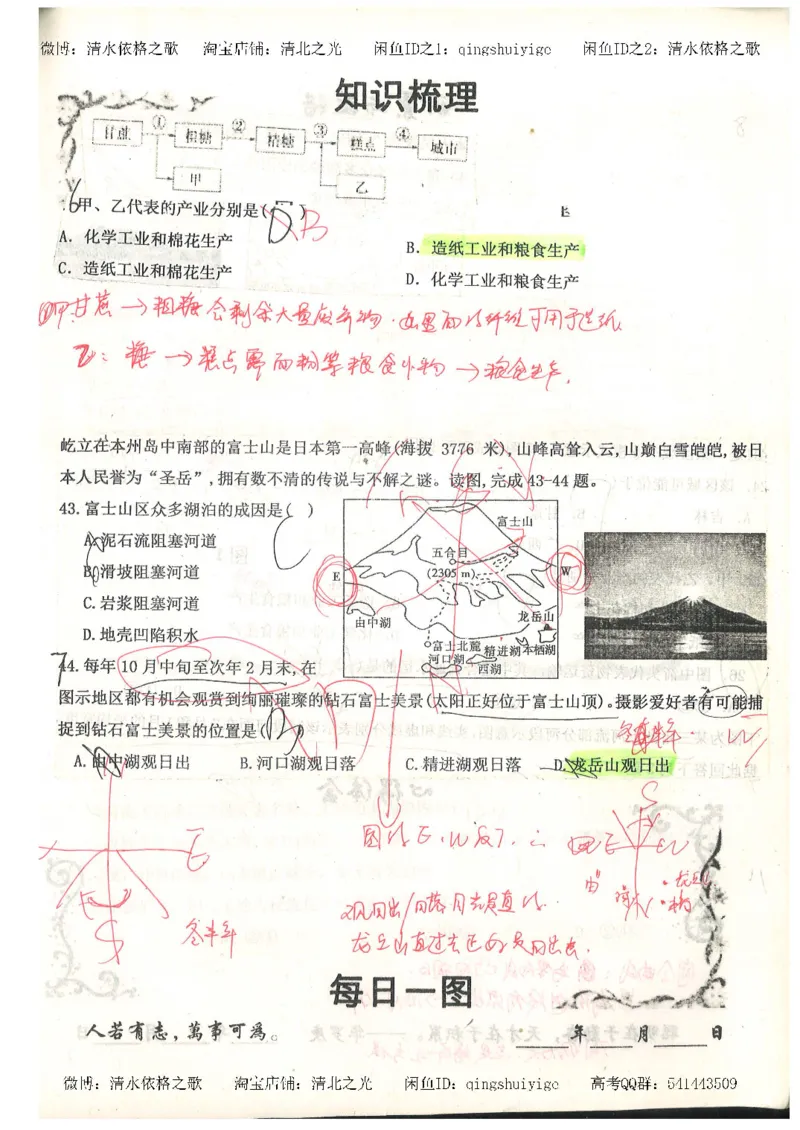 微博：清水依格之歌 淘宝店铺：清北之光 闲鱼ID之1：qingshuiyige 闲鱼ID之2：清水依格之歌
知识梳理
甘蔗 ① 粗糖 ② 精糖 ③ 糕点 ④ 城市
甲 乙
6甲、乙代表的产业分别是( D ) B
A. 化学工业和棉花生产
B. 造纸工业和粮食生产
C. 造纸工业和棉花生产
D. 化学工业和粮食生产
甘蔗→粗糖会剩余大量废弃物
乙：糖→糕点需面粉等粮食作物→粮食生产.
屹立在本州岛中南部的富士山是日本第一高峰(海拔 3776 米)，山峰高耸入云，山巅白雪皑皑，被日
本人民誉为“圣岳”，拥有数不清的传说与不解之谜。读图，完成43-44题。
43. 富士山区众多湖泊的成因是( C )
A. 泥石流阻塞河道
B. 滑坡阻塞河道
C. 岩浆阻塞河道
D. 地壳凹陷积水
富士山
五合目
(2305 m)
E
W
由中湖
龙岳山
富士北麓
精进湖
本栖湖
河口湖
西湖
44. 每年10月中旬至次年2月末，在
图示地区都有机会观赏到绚丽璀璨的钻石富士美景(太阳正好位于富士山顶)。摄影爱好者有可能捕
捉到钻石富士美景的位置是( D )
冬半年
A. 由中湖观日出 B. 河口湖观日落 C. 精进湖观日落 D. 龙岳山观日出
E
S
冬半年
S
观日出/日落
每日一图
人若有志，萬事可為。
年 月 日
微博：清水依格之歌 淘宝店铺：清北之光 闲鱼ID：qingshuiyige 高考QQ群：541443509